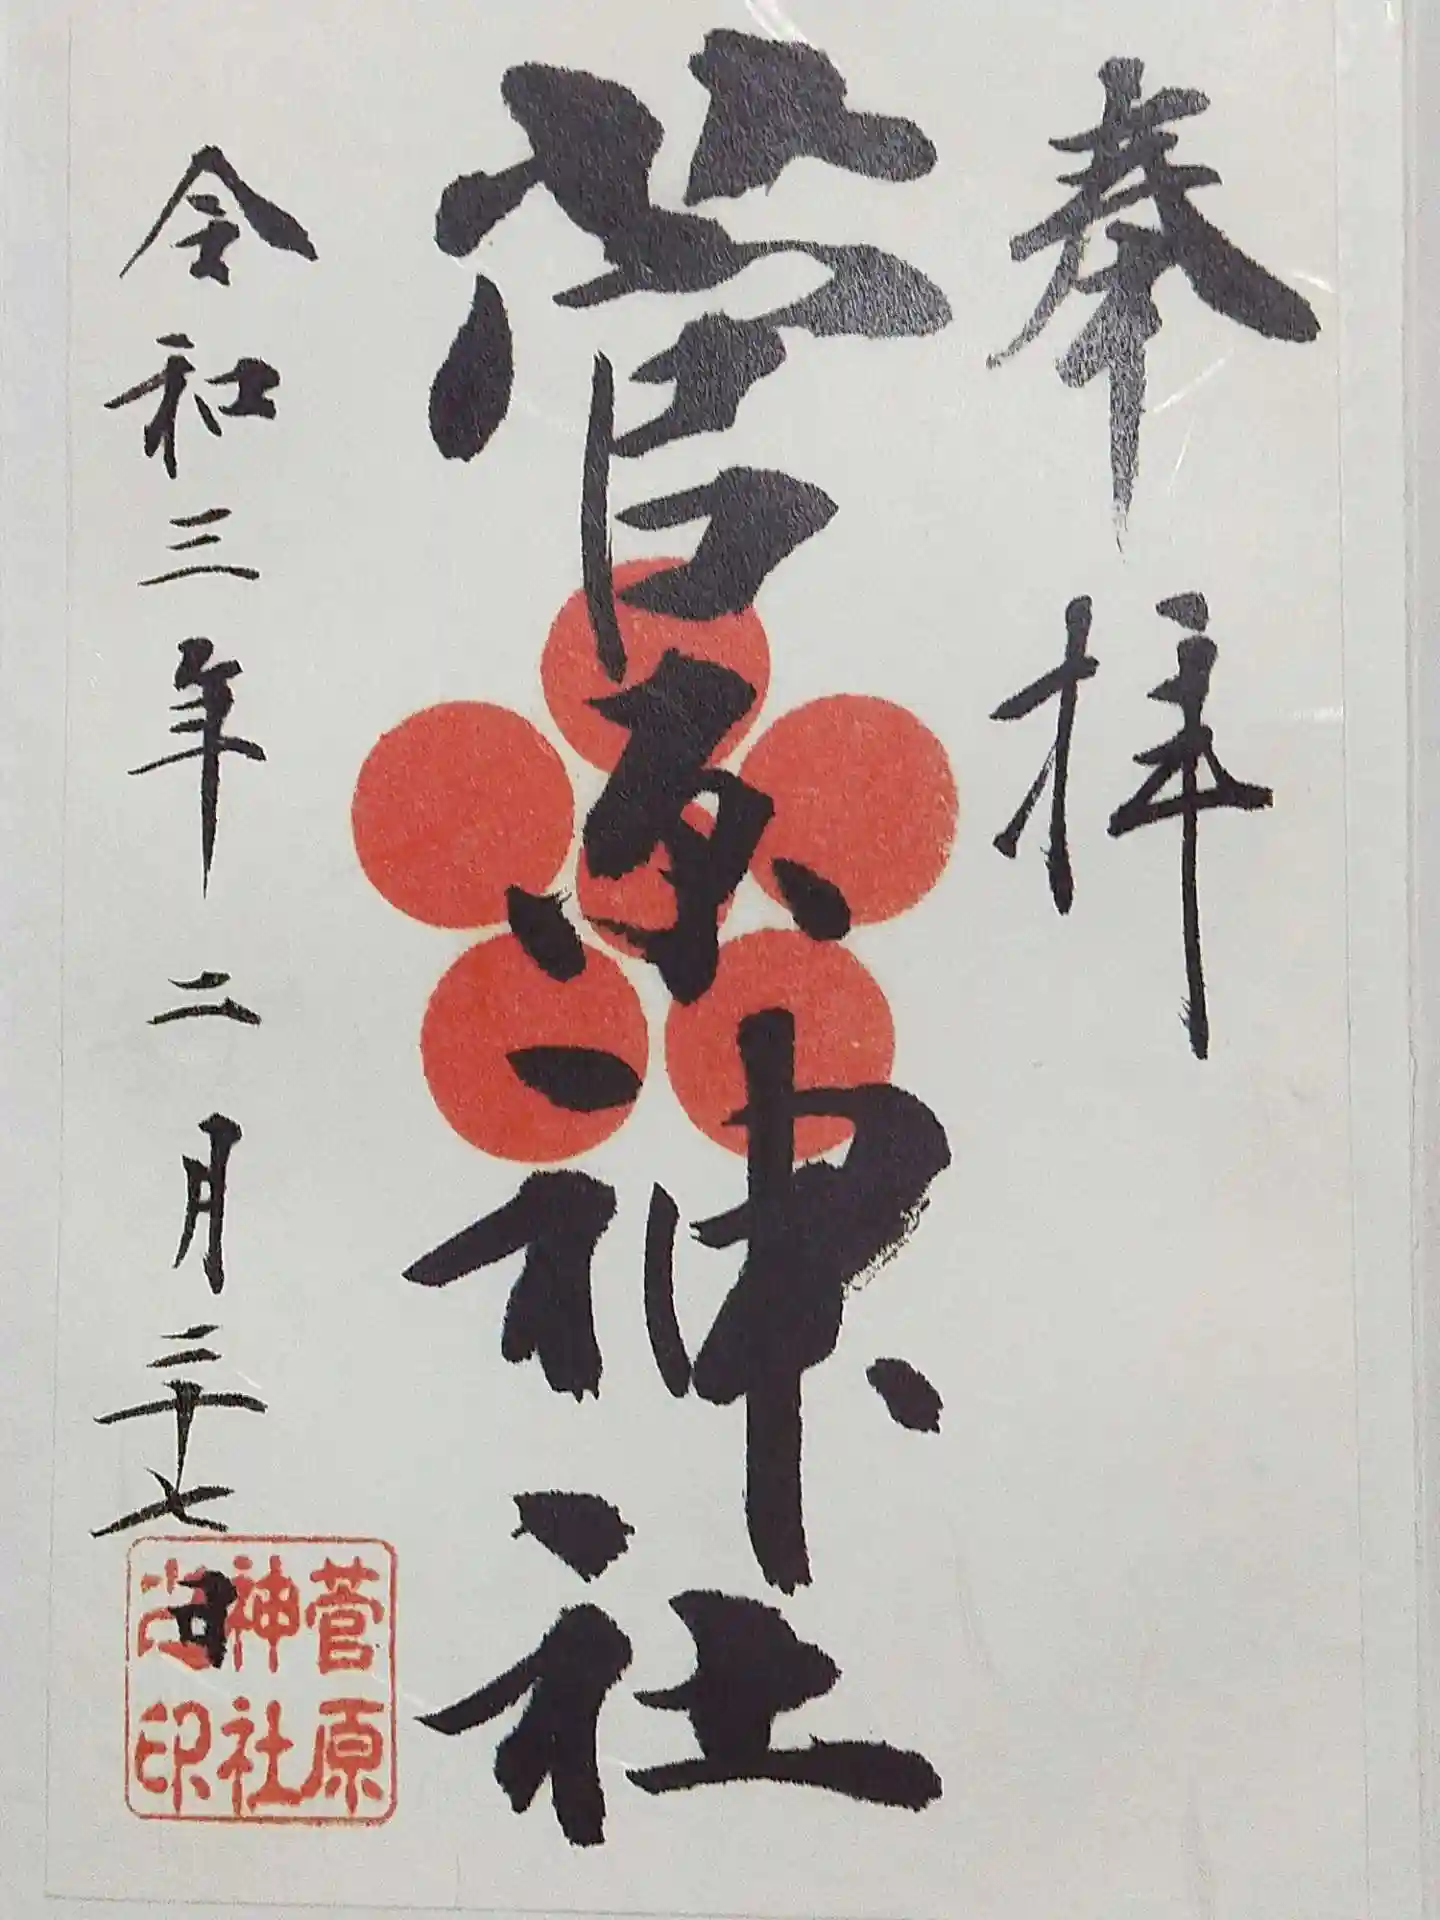 奉拝
菅原神社
令和三年二月二十七日
菅原
神社
印